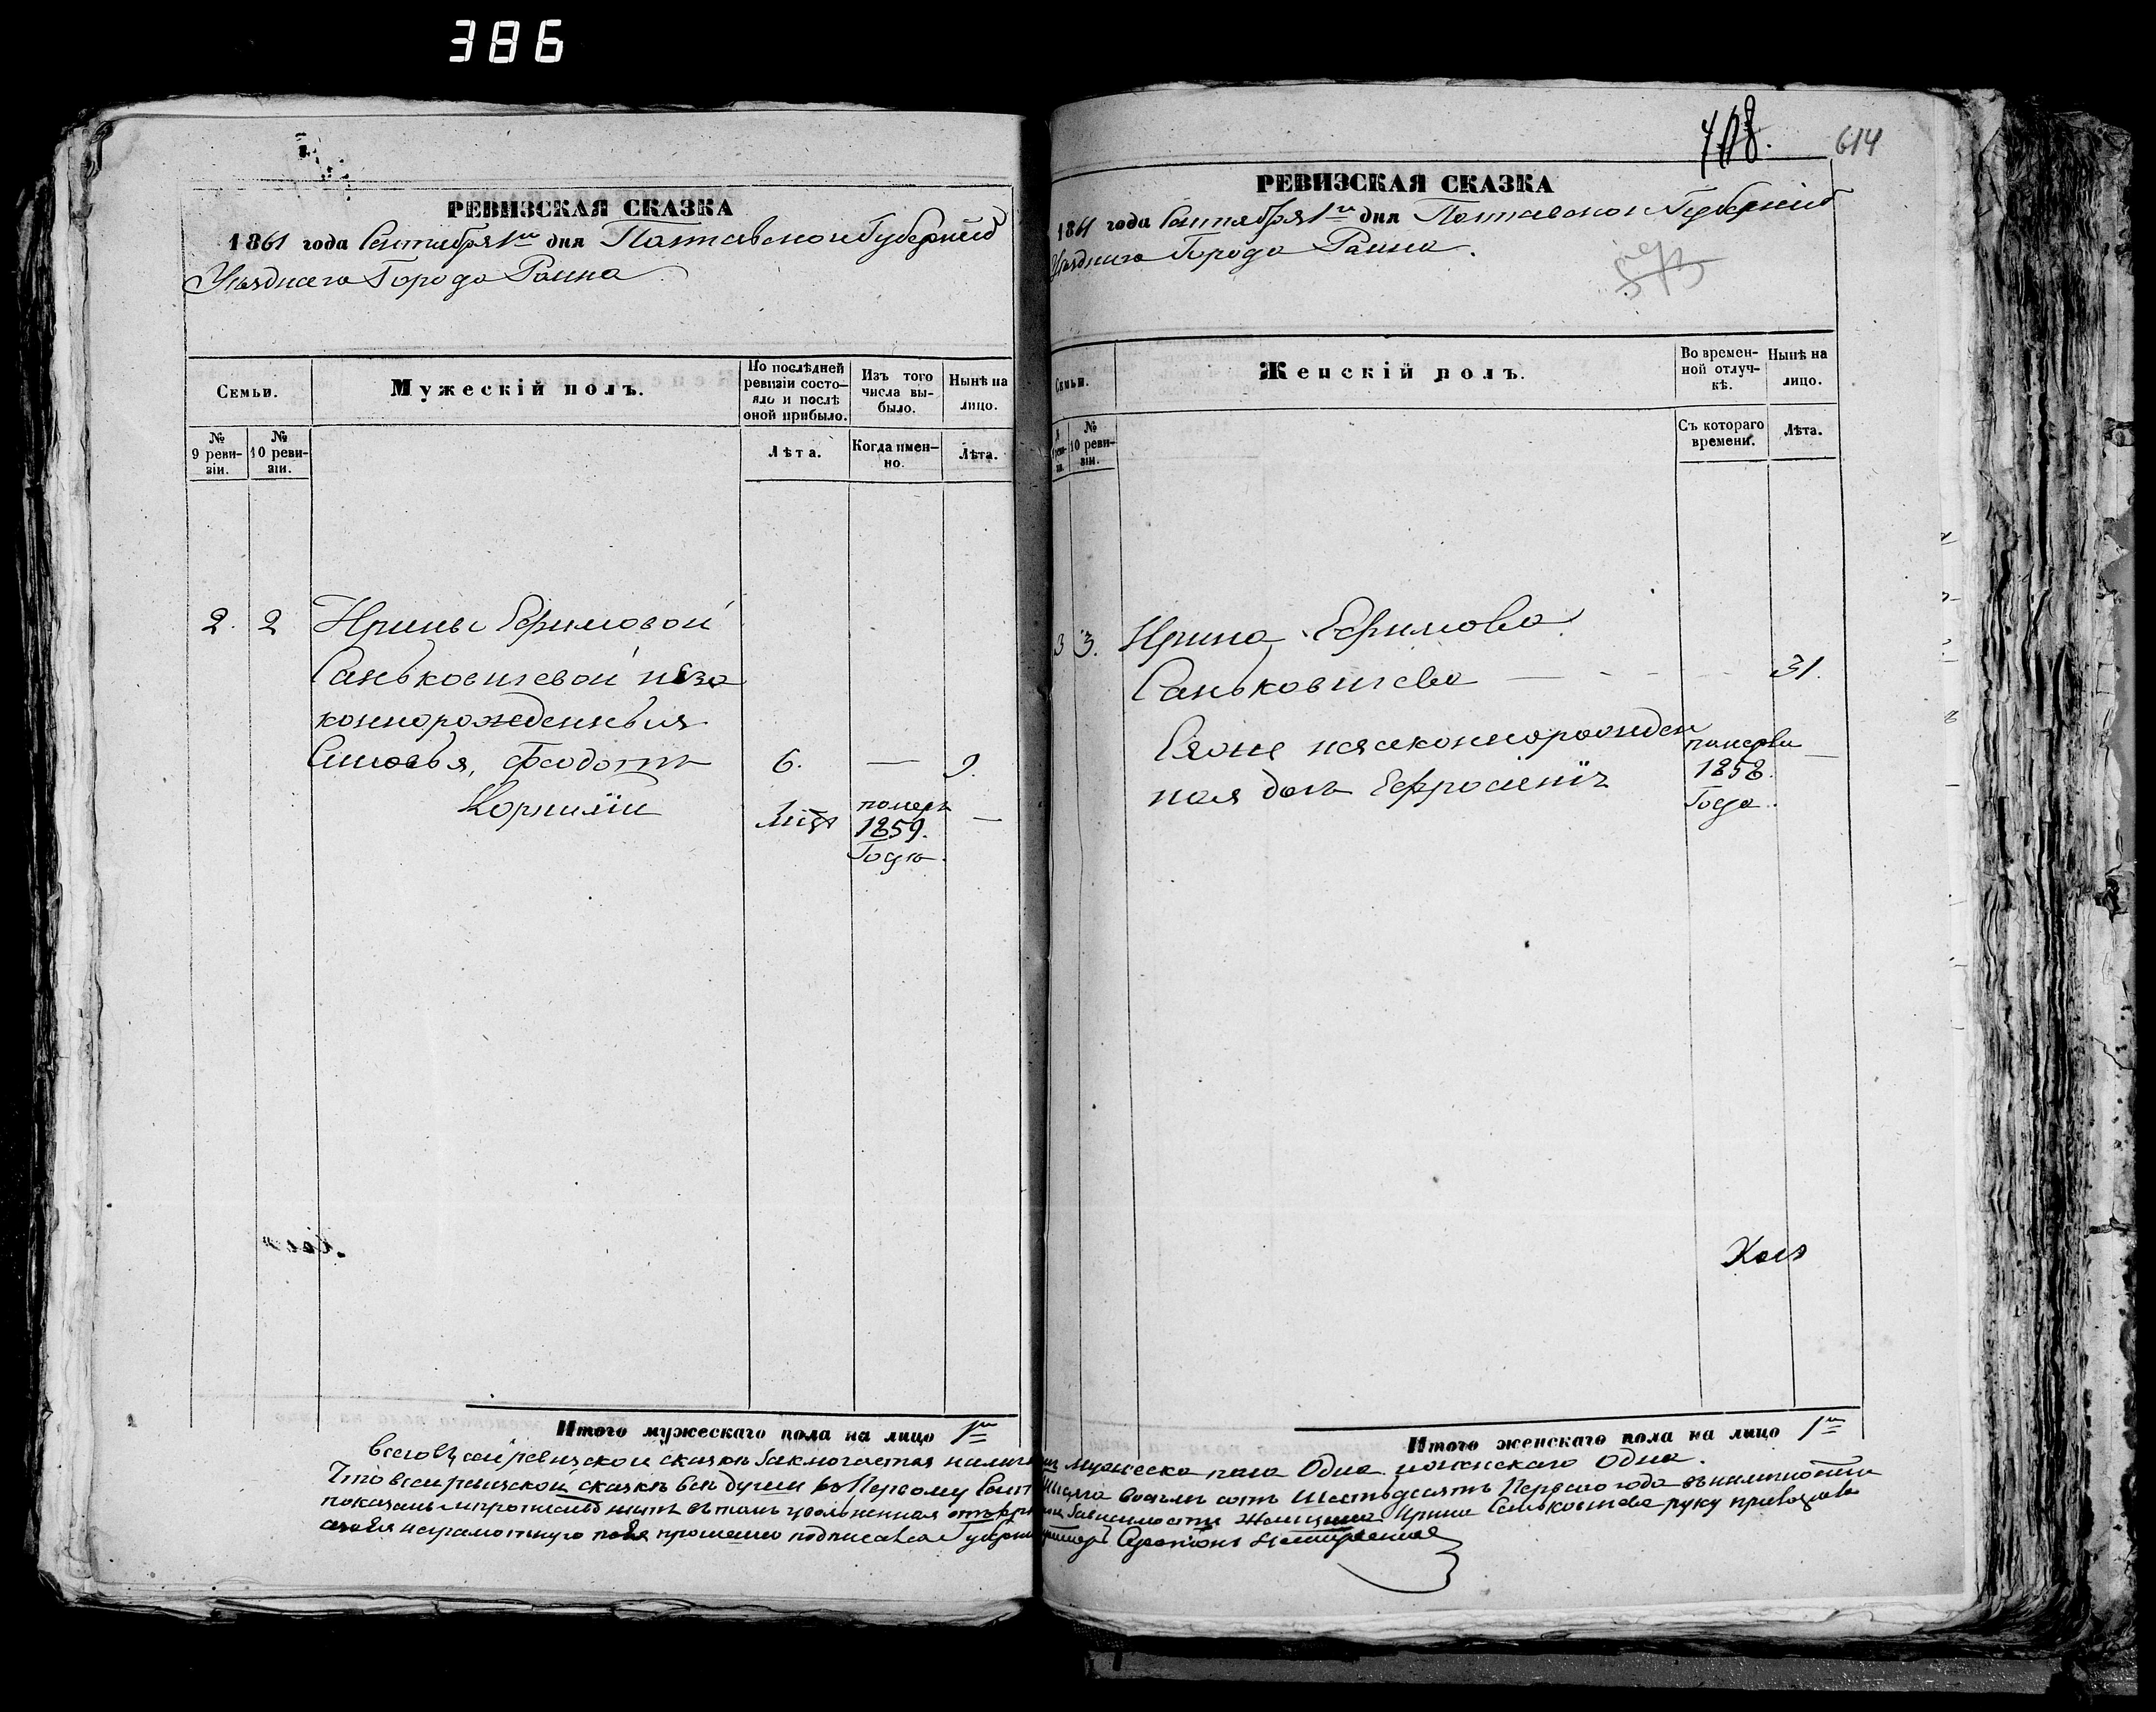 386
РЕВИЗСКАЯ СКАЗКА
1861 года Сентября 1го дня Полтавской Губерніи
Уѣзднаго Города Ромна
Семьи.
Мужескій полъ.
По послѣдней ревизіи состо-
яло и послѣ оной прибыло.
Изъ того числа вы-
было.
Нынѣ на лицо.
№ 9 реви-
зіи.
№ 10 реви-
зіи.
Лѣта.
Когда имен-
но.
Лѣта.
2. 2 Ирины Ефимовой
Саньковичевой неза
коннорожденныя
Сыновья, Феодотъ 6. — 9.
Корнилій померъ —
1859.
Года.
Итого мужескаго пола на лицо 1го
718. 614
РЕВИЗСКАЯ СКАЗКА
1861 года Сентября 1го дня Полтавской Губерніи
Уѣзднаго Города Ромна.
Семьи.
Женскій полъ.
Во времен-
ной отлуч-
кѣ.
Нынѣ на лицо.
№ 10 реви-
зіи.
Съ котораго времени.
Лѣта.
3 3. Ирина Ефимова
Саньковичева — 31.
Еяже незаконнорожден
ная дочь Ефросинія
померла
1858.
Года.
Итого женскаго пола на лицо 1
Всего въ сей ревизской сказкѣ заключается налич мужеска пола Одна женскаго Одна.
Что в сей ревизской сказкѣ всѣ души къ Первому восемь сотъ Шестьдесятъ Перваго года въ наличности
показаны и прописныхъ нѣтъ въ томъ уволенная отъ зависимости Женщина Ирина Саньковичева руку приложила
а за нея неграмотную по ея прошенію подписался